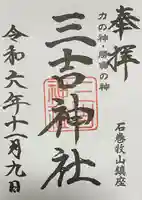 奉拝
力の神・勝負の神
石巻牧山鎮座
三吉神社
令和六年十一月九日